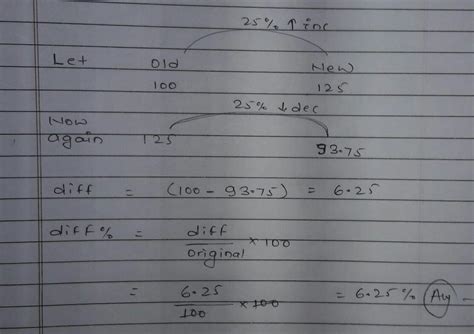 25% ↑ inc
Let Old New
100 125
25% ↓ dec
Now
again 125 93.75
diff = (100 - 93.75) = 6.25
diff% = diff/original × 100
= 6.25/100 × 100 = 6.25% Ans